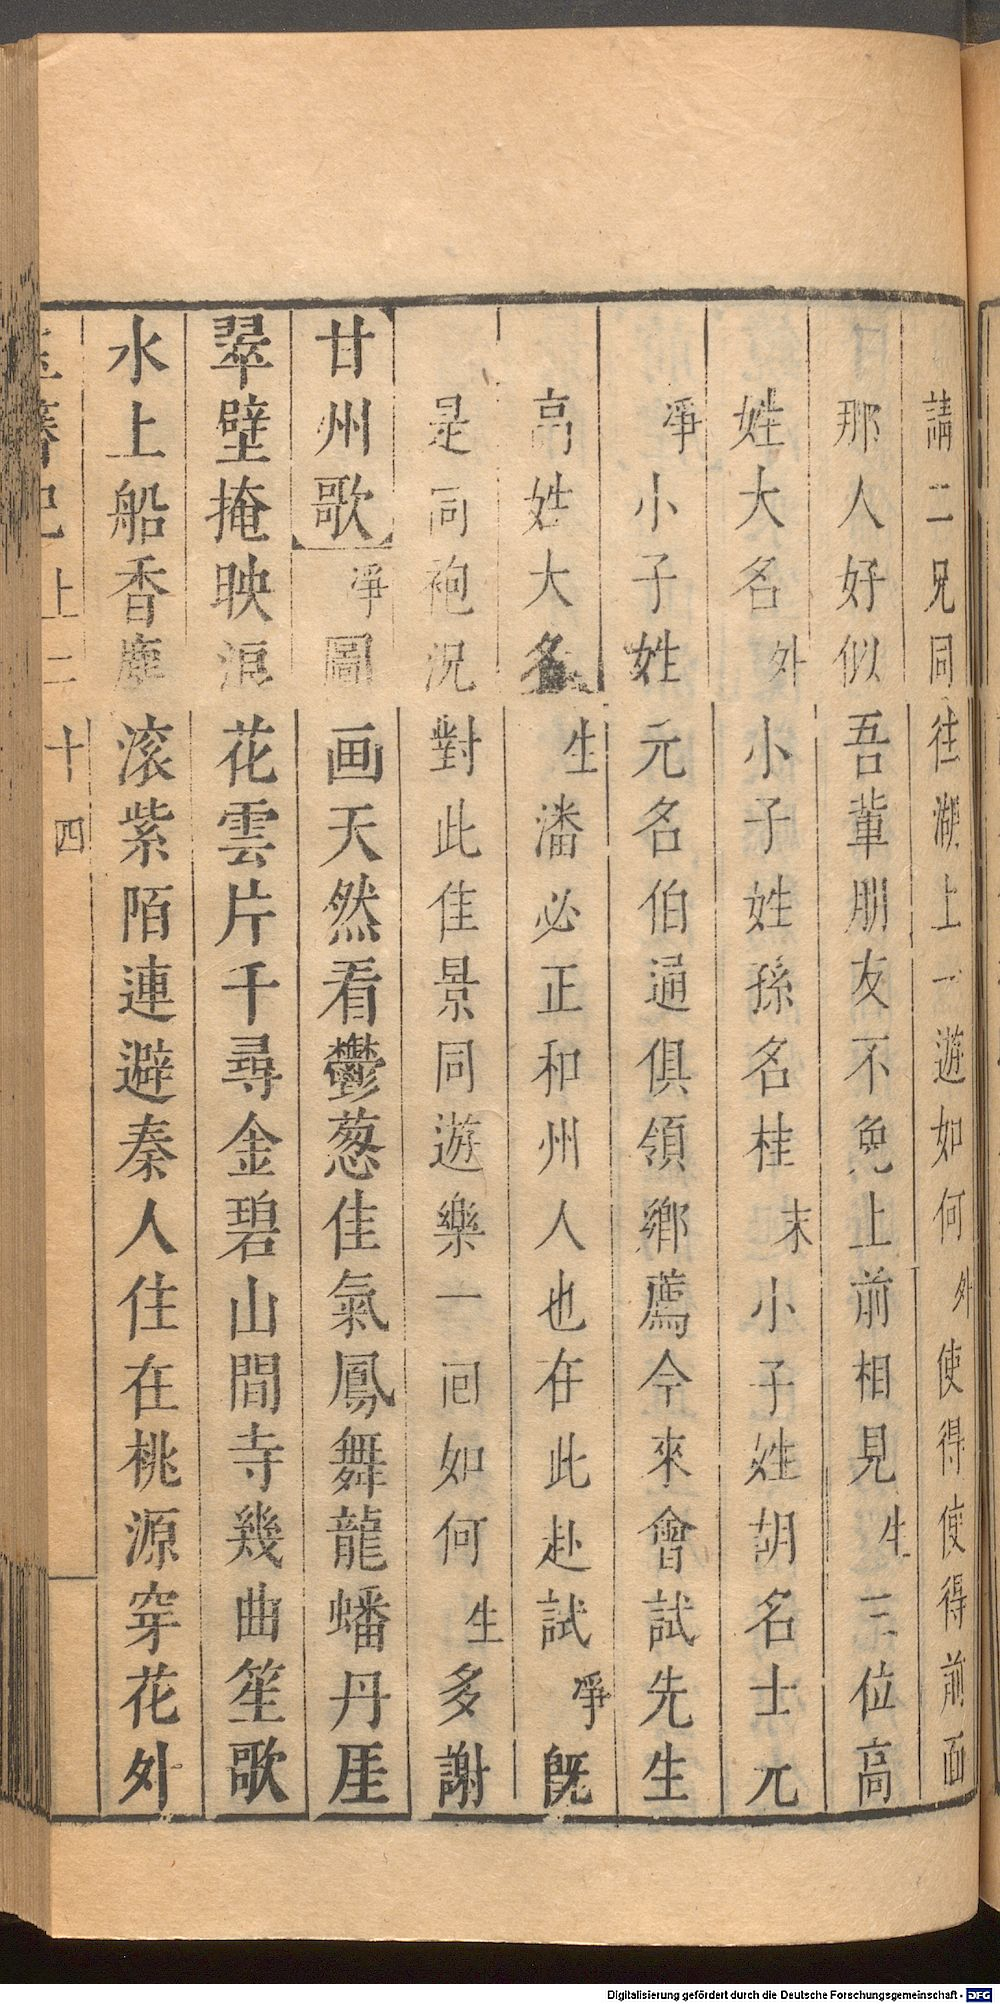 請二兄同往湖上一遊如何外使得使得前面
那人好似吾輩朋友不免上前相見生三位高
姓大名外小子姓孫名桂末小子姓胡名士元
凈小子姓元名伯通俱領鄉薦今來會試先生
高姓大名生潘必正和州人也在此赴試凈旣
是同袍況對此佳景同遊樂一回如何生多謝
甘州歌凈圖画天然看鬱葱佳氣鳳舞龍蟠丹厓
翠壁掩映浪花雲片千尋金碧山間寺幾曲笙歌
水上船香塵滚紫陌連避秦人住在桃源穿花外
玉簪記上二十四
Digitalisierung gefördert durch die Deutsche Forschungsgemeinschaft - DFG